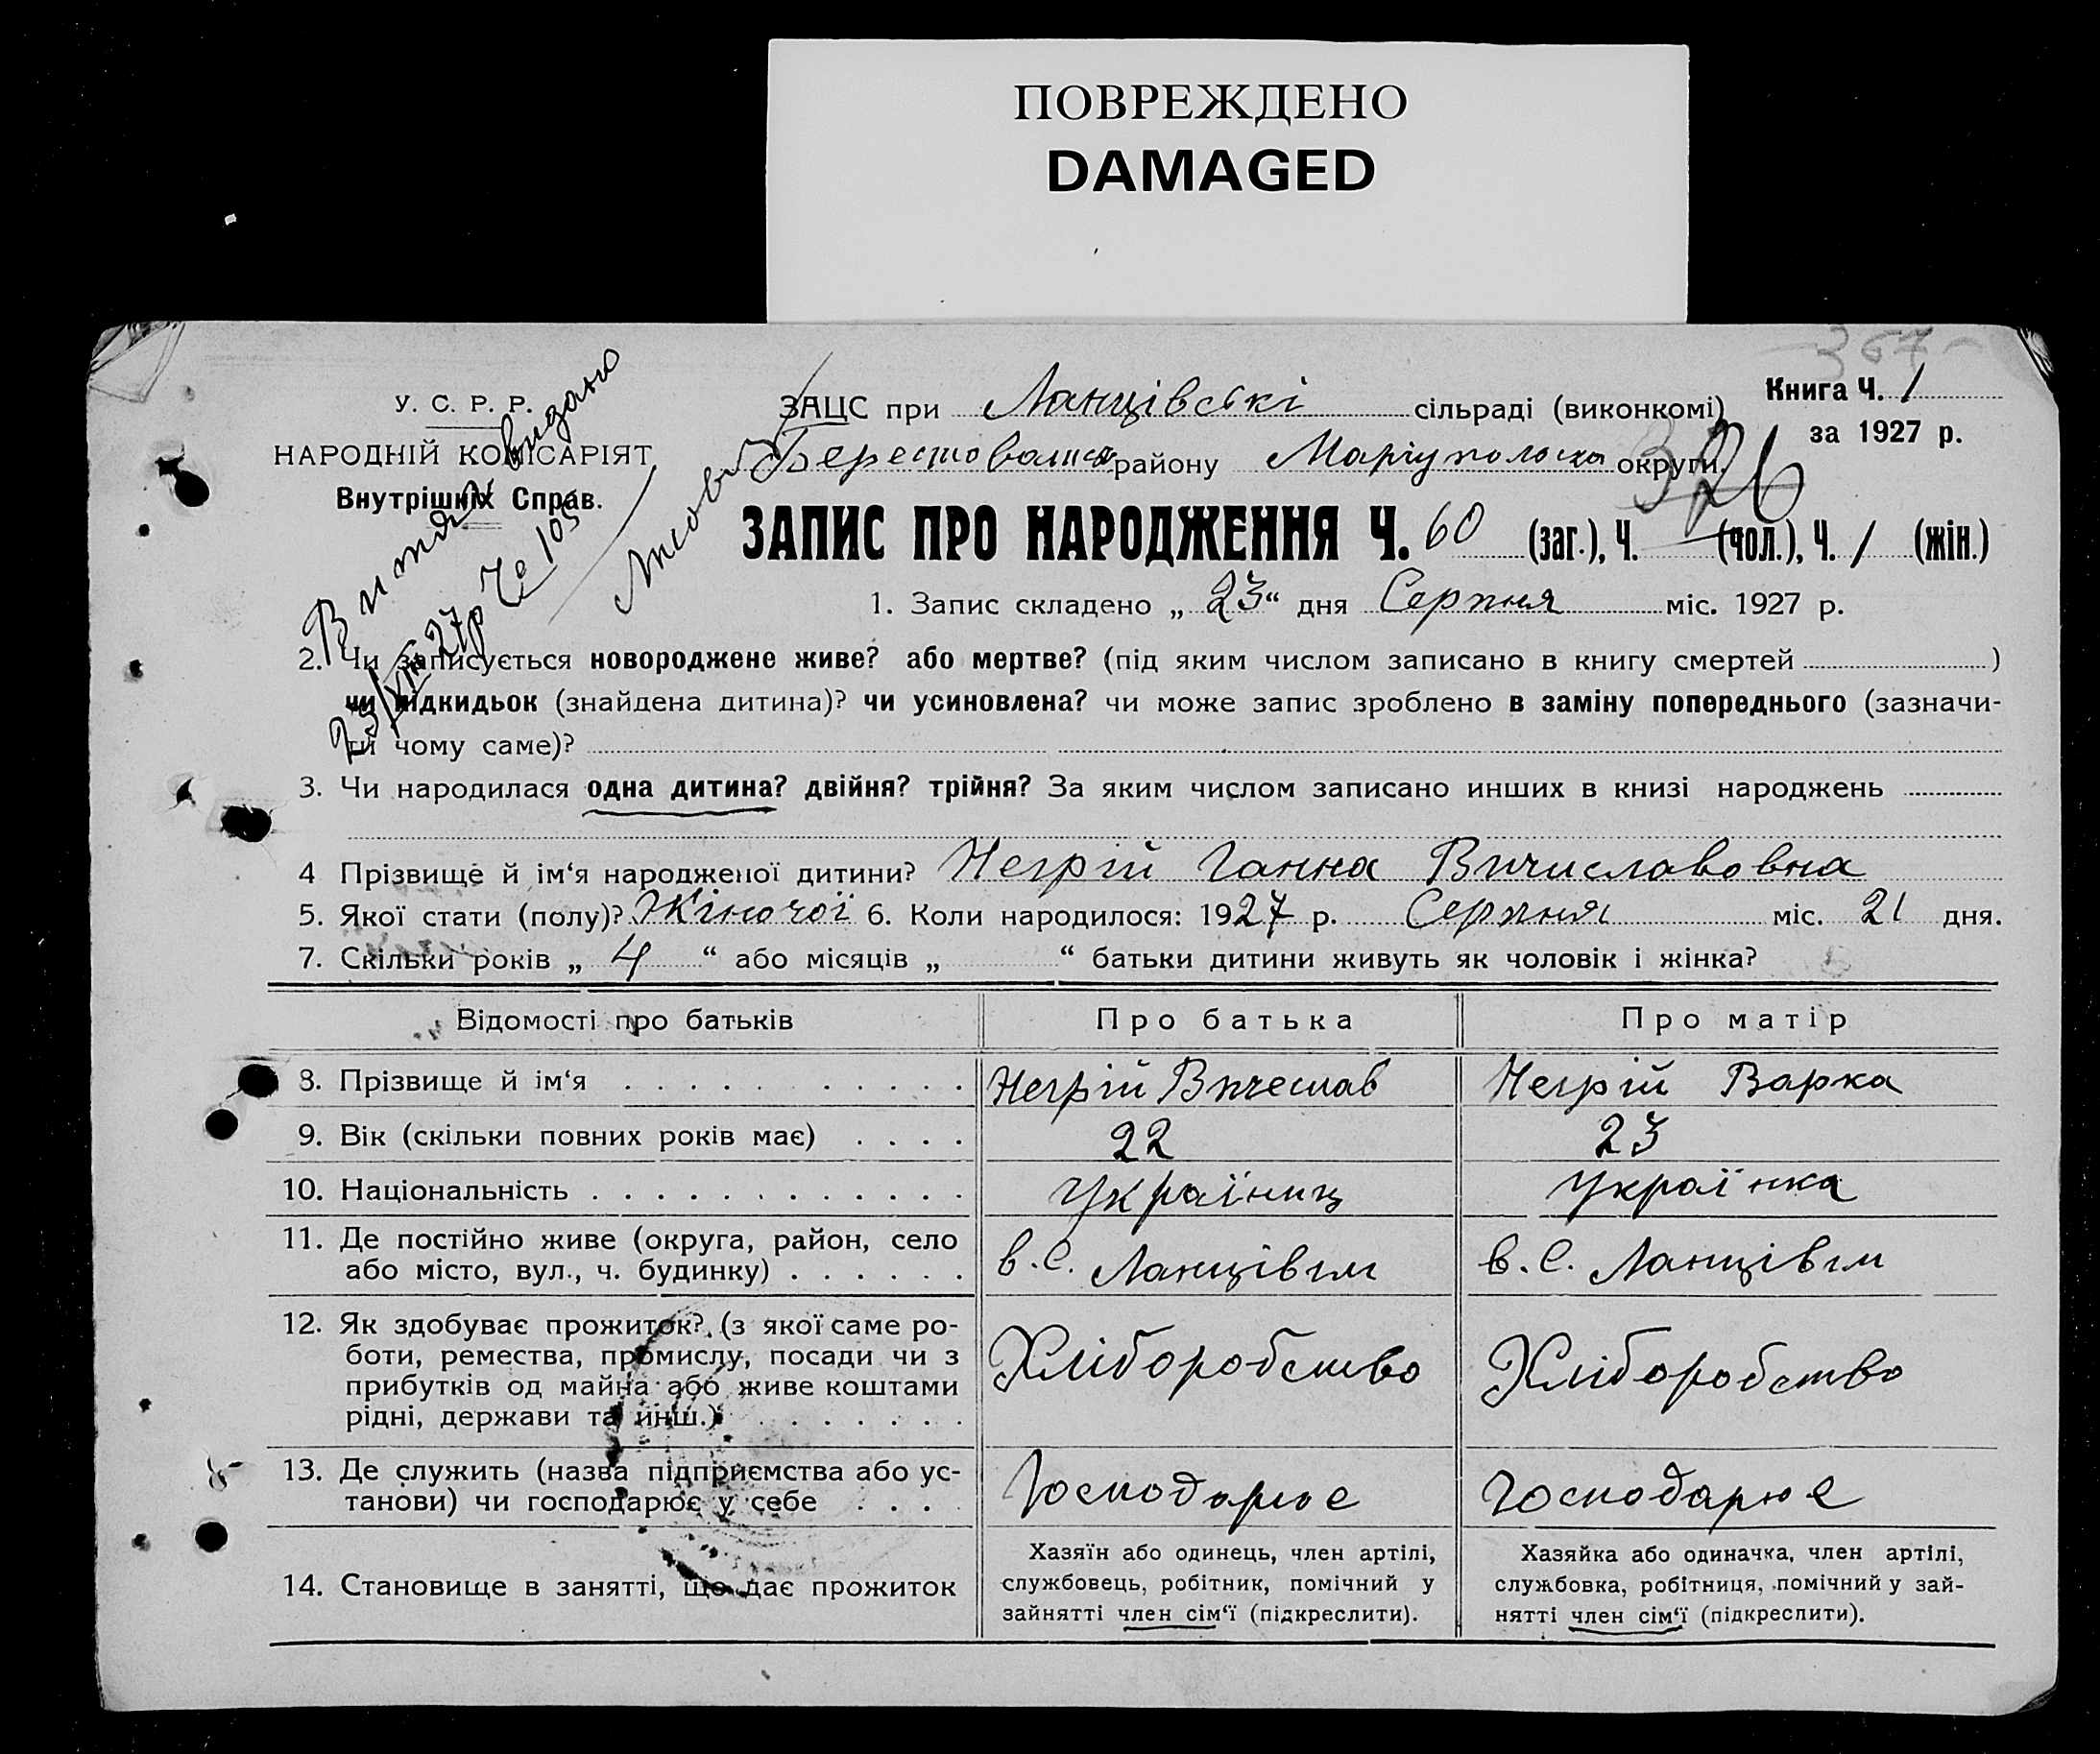 ПОВРЕЖДЕНО
DAMAGED
367
У. С. Р. Р.
НАРОДНІЙ КОМІСАРІЯТ
Внутрішніх Справ.
видано
23/VIII 27р Че 105
ЗАЦС при Ланцівські сільраді (виконкомі)
Книга Ч. 1
за 1927 р.
району Маріупольська округи.
326
ЗАПИС ПРО НАРОДЖЕННЯ Ч. 60 (заг.), Ч. (чол.), Ч. 1 (жін.)
1. Запис складено „ 23 “ дня Серпня міс. 1927 р.
2. Чи записується новороджене живе? або мертве? (під яким числом записано в книгу смертей )
чи підкидьок (знайдена дитина)? чи усиновлена? чи може запис зроблено в заміну попереднього (зазначи-
ти чому саме)?
3. Чи народилася одна дитина? двійня? трійня? За яким числом записано инших в книзі народжень
4 Прізвище й ім‘я народженої дитини? Негрій Ганна Вичиславовна
5. Якої стати (полу)? Жіночої 6. Коли народилося: 1927 р. Серпня міс. 21 дня.
7. Скільки років „ 4 “ або місяців „ “ батьки дитини живуть як чоловік і жінка?
Відомості про батьків Про батька Про матір
8. Прізвище й ім‘я . . . . . . . . . . . Негрій Вячеслав Негрій Варка
9. Вік (скільки повних років має) . . . . 22 23
10. Національність . . . . . . . . . . . . Українец Українка
11. Де постійно живе (округа, район, село
або місто, вул., ч. будинку) . . . . . . в. с. Ланцівім в. с. Ланцівім
12. Як здобуває прожиток? (з якої саме ро-
боти, ремества, промислу, посади чи з
прибутків од майна або живе коштами
рідні, держави та инш.) . . . . . . . Хліборобство Хліборобство
13. Де служить (назва підприємства або ус-
танови) чи господарює у себе . . . . Господарює Господарює
14. Становище в занятті, що дає прожиток
Хазяїн або одинець, член артілі,
службовець, робітник, помічний у
зайнятті член сім‘ї (підкреслити).
Хазяйка або одиначка, член артілі,
службовка, робітниця, помічний у зай-
нятті член сім‘ї (підкреслити).